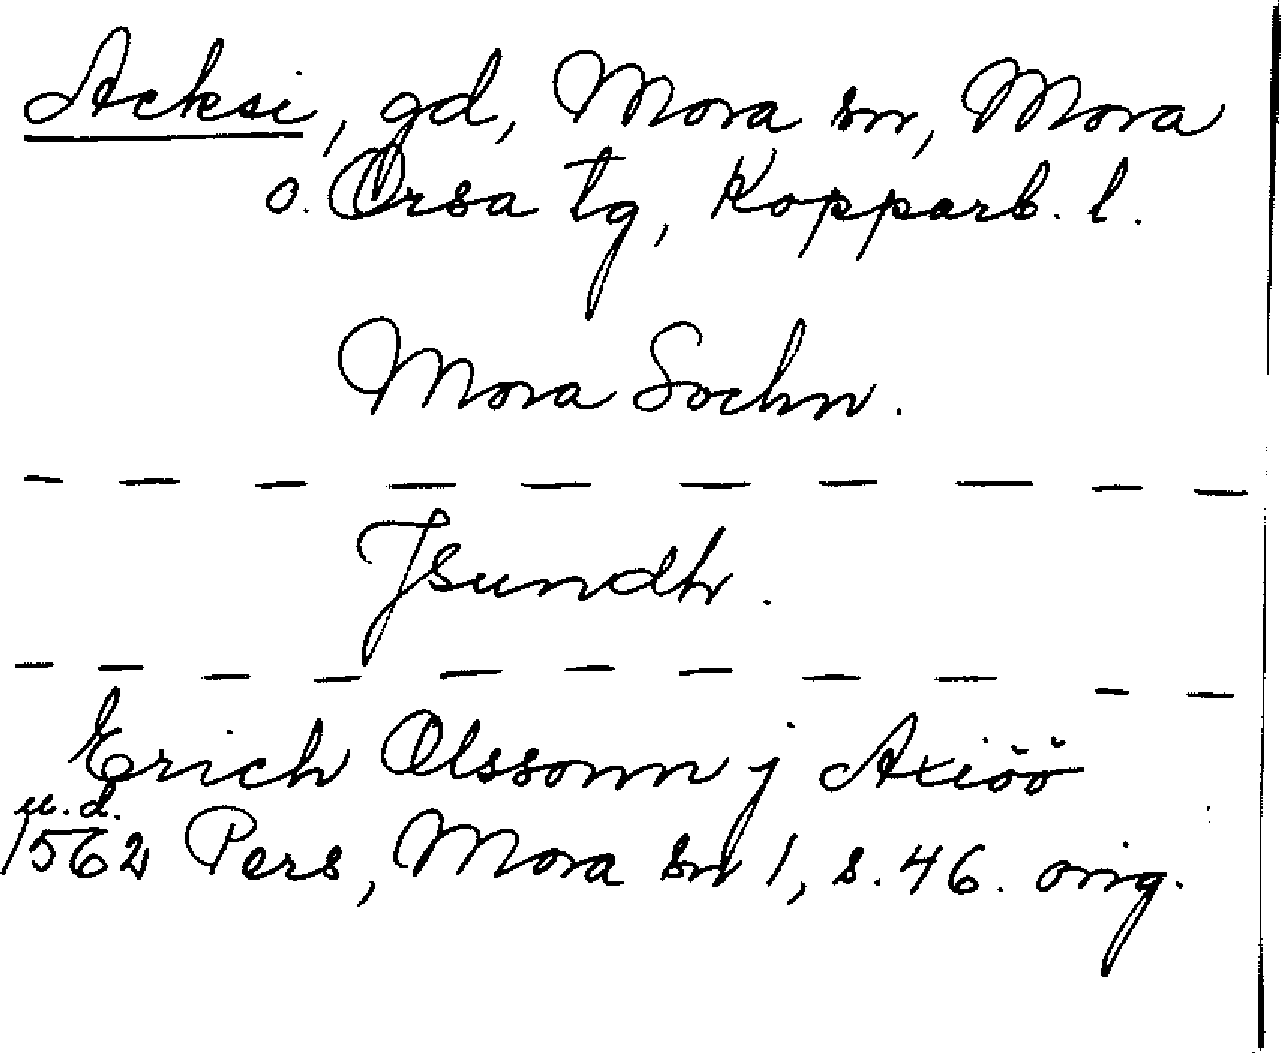 Acksi, gd, Mora sn, Mora
o. Orsa tg, Kopparb. l.
Mora Sochn.
— — — — — — — — — —
Jsundh.
— — — — — — — — — —
Erich Olssonn j Axiöö
u.d.
1562 Pers, Mora sn 1, s. 46. orig.